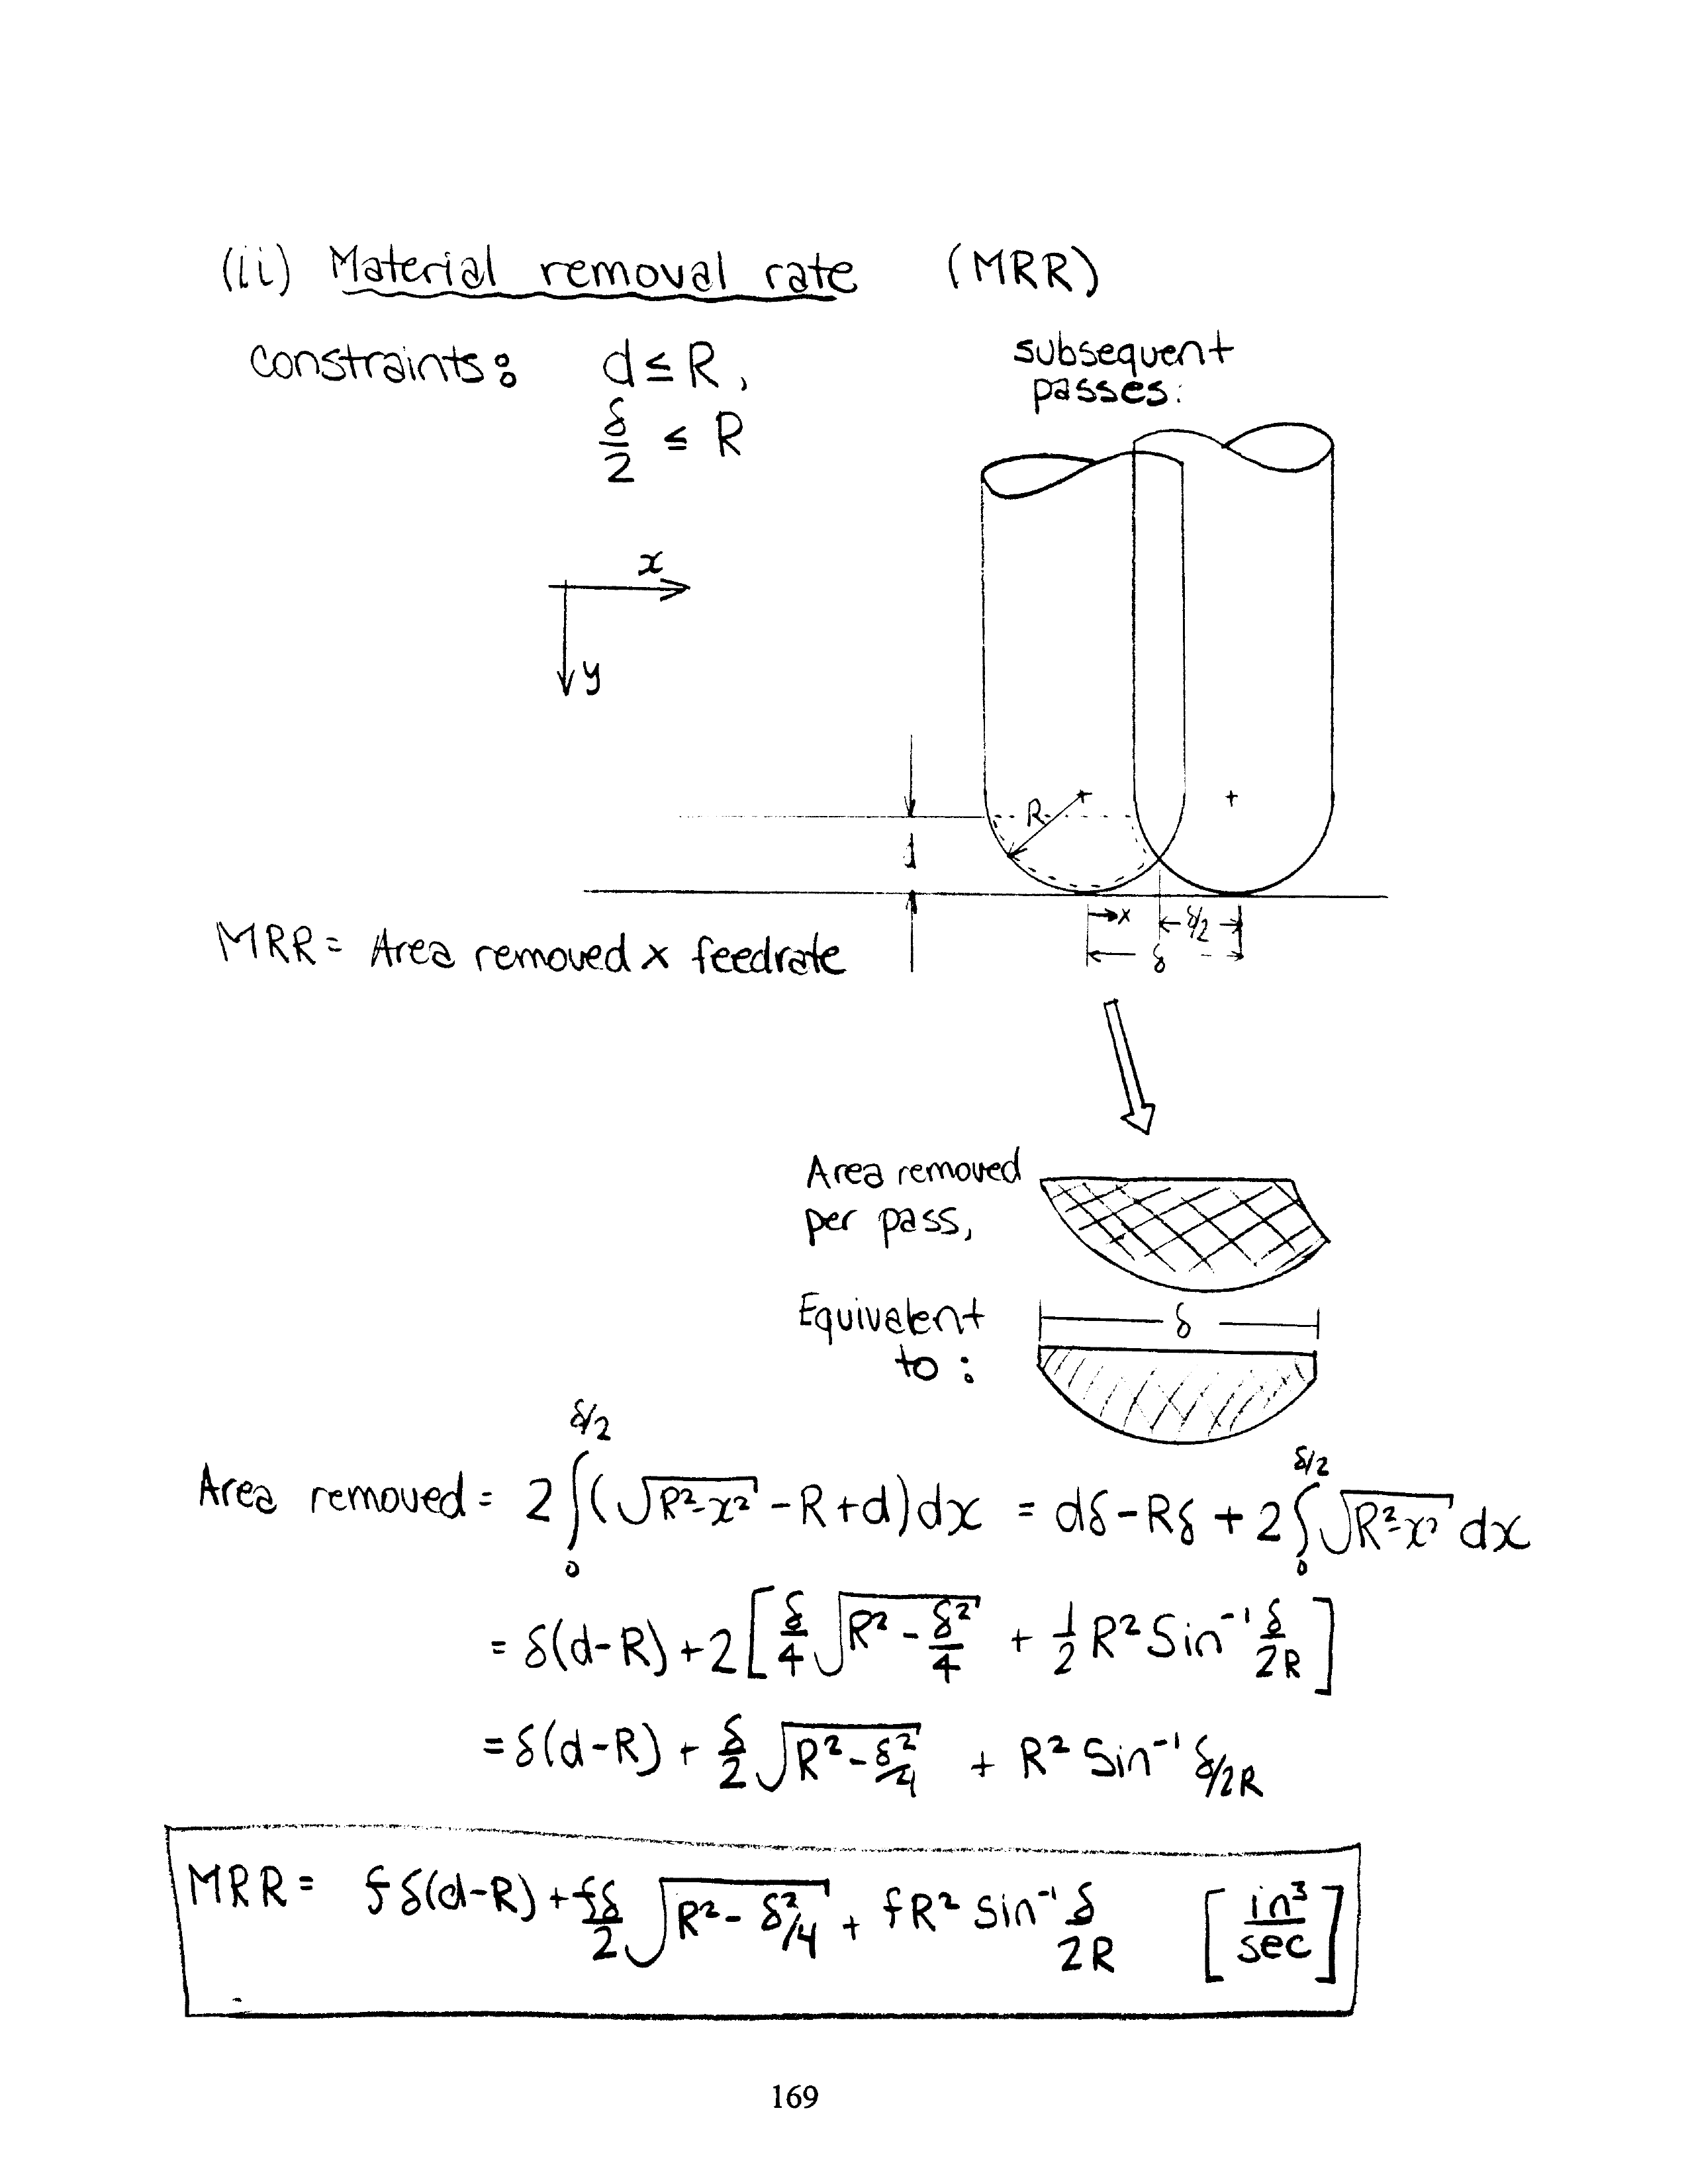 (ii) Material removal rate (MRR)
constraints: d ≤ R,
δ/2 ≤ R
subsequent
passes:
x
y
R
d
x
δ/2
δ
MRR = Area removed x feedrate
Area removed
per pass,
Equivalent
to:
δ
Area removed = 2 ∫₀^(δ/2) (√(R²-x²) - R + d) dx = dδ - Rδ + 2 ∫₀^(δ/2) √(R²-x²) dx
= δ(d-R) + 2 [ δ/4 √(R² - δ²/4) + 1/2 R² Sin⁻¹ δ/2R ]
= δ(d-R) + δ/2 √(R² - δ²/4) + R² Sin⁻¹ δ/2R
MRR = fδ(d-R) + fδ/2 √(R² - δ²/4) + fR² sin⁻¹ δ/2R [in³/sec]
169